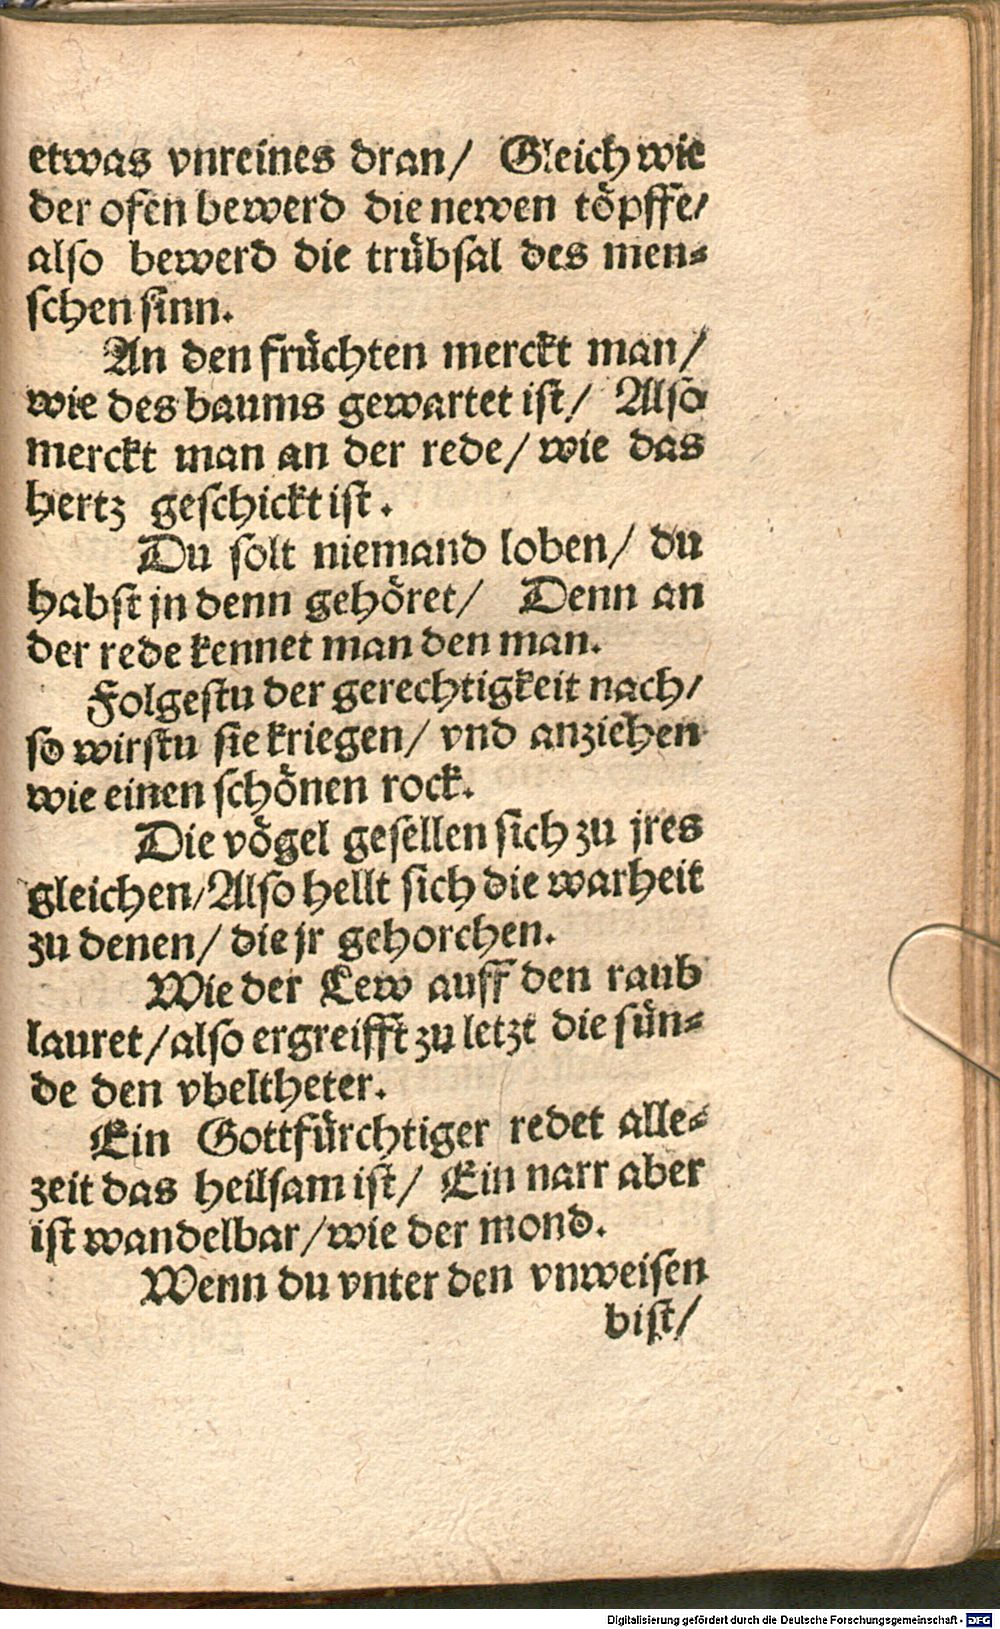 etwas vnreines dran/ Gleich wie
der ofen bewerd die newen töpffe/
also bewerd die trübsal des men⸗
schen sinn.
An den früchten merckt man/
wie des baums gewartet ist/ Also
merckt man an der rede/ wie das
hertz geschickt ist.
Du solt niemand loben/ du
habst jn denn gehöret/ Denn an
der rede kennet man den man.
Folgestu der gerechtigkeit nach/
so wirstu sie kriegen/ vnd anziehen
wie einen schönen rock.
Die vögel gesellen sich zu jres
gleichen/ Also hellt sich die warheit
zu denen/ die jr gehorchen.
Wie der Lew auff den raub
lauret/ also ergreifft zu letzt die sün⸗
de den vbeltheter.
Ein Gottfürchtiger redet alle⸗
zeit das heilsam ist/ Ein narr aber
ist wandelbar/ wie der mond.
Wenn du vnter den vnweisen
bist/
Digitalisierung gefördert durch die Deutsche Forschungsgemeinschaft - DFG